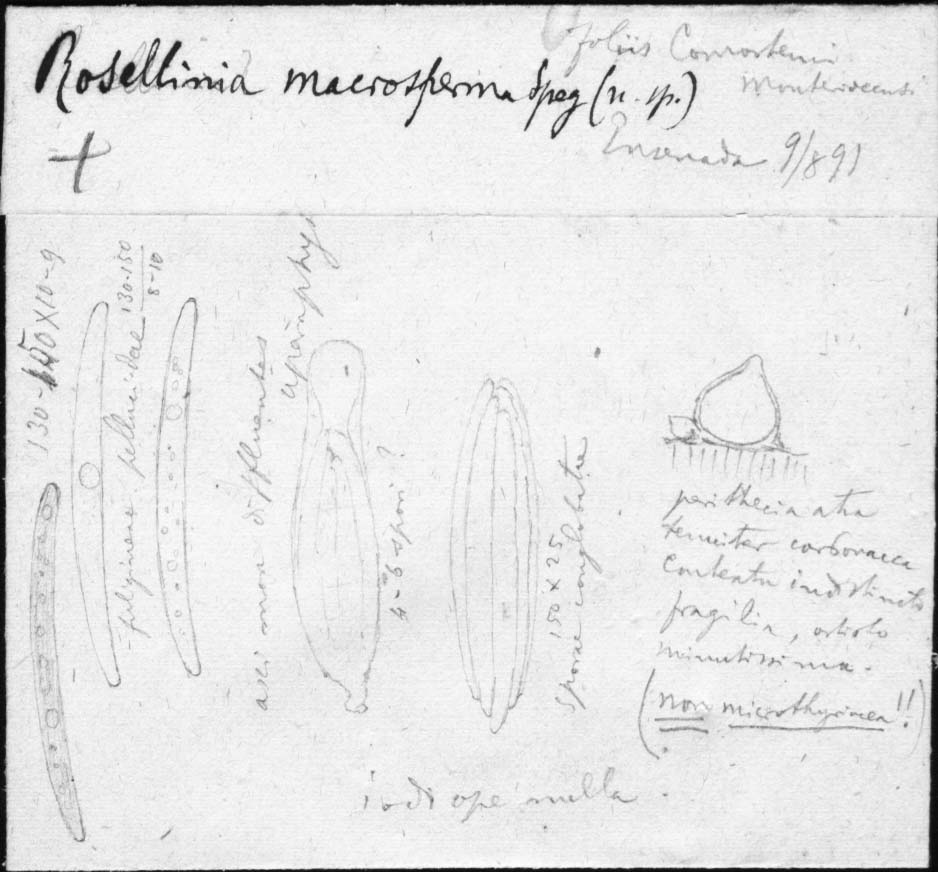 foliis
Rosellinia macrosperma Speg (n. sp.)
Ensenada 9/8 91
+
130-150 X 10-9
fuligineae pellucidae 130-150
8-10
asci mox diffluentes
aparaphys
4-6 spori ?
150 X 25
sporae conglobatae
perithecia atra
tenuiter carbonacea
contextu indistincto
fragilia, ostiolo
minutissima.
(non microthyriacea!!)
iodi ope nulla.